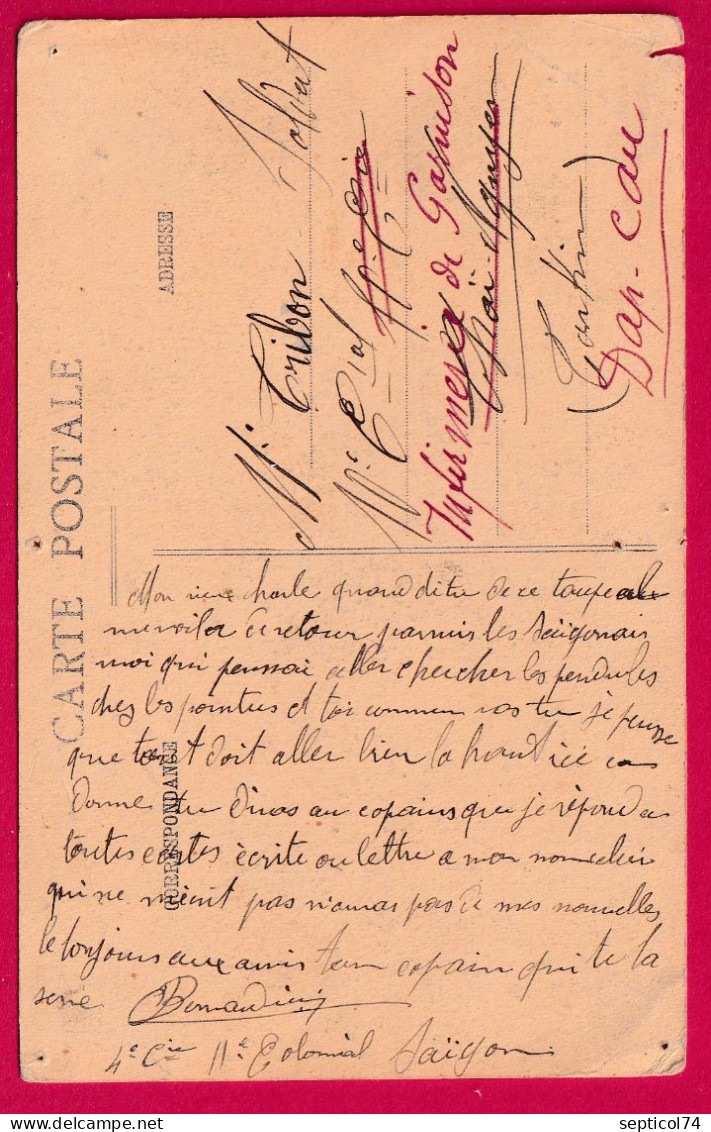 CARTE POSTALE
CORRESPONDANCE
ADRESSE
Mr Tribon Soldat
11e Cie
Infirmerie de Garnison
Thaï-Nguyen
(Tonkin)
Dap-Cau
Mon vieux charle quand di tu de ce
me voila de retour parmis les Saïgonais
moi qui penssai aller chercher les pendules
chez les pointus et toi commen vas tu je pensse
que tout doit aller bien la haut ici ca
donne tu diras au copains que je répond a
toutes cartes écrite ou lettre a mon
qui ne m'écrit pas n'auras pas de mes nouvelles
le bonjours aux amis ton copain qui te la
serre Bernardini
4e Cie 11e Colonial Saïgon
septicol74